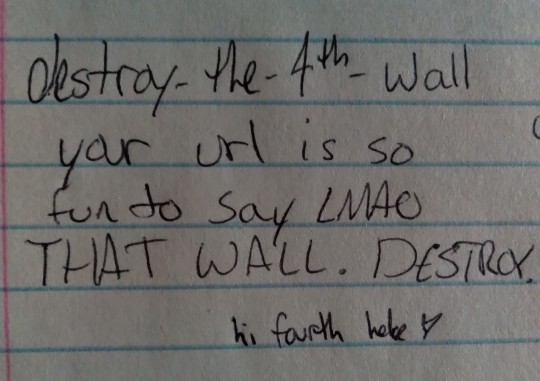 destroy-the-4th-wall
your url is so
fun to say LMAO
THAT WALL. DESTROY.
hi fourth